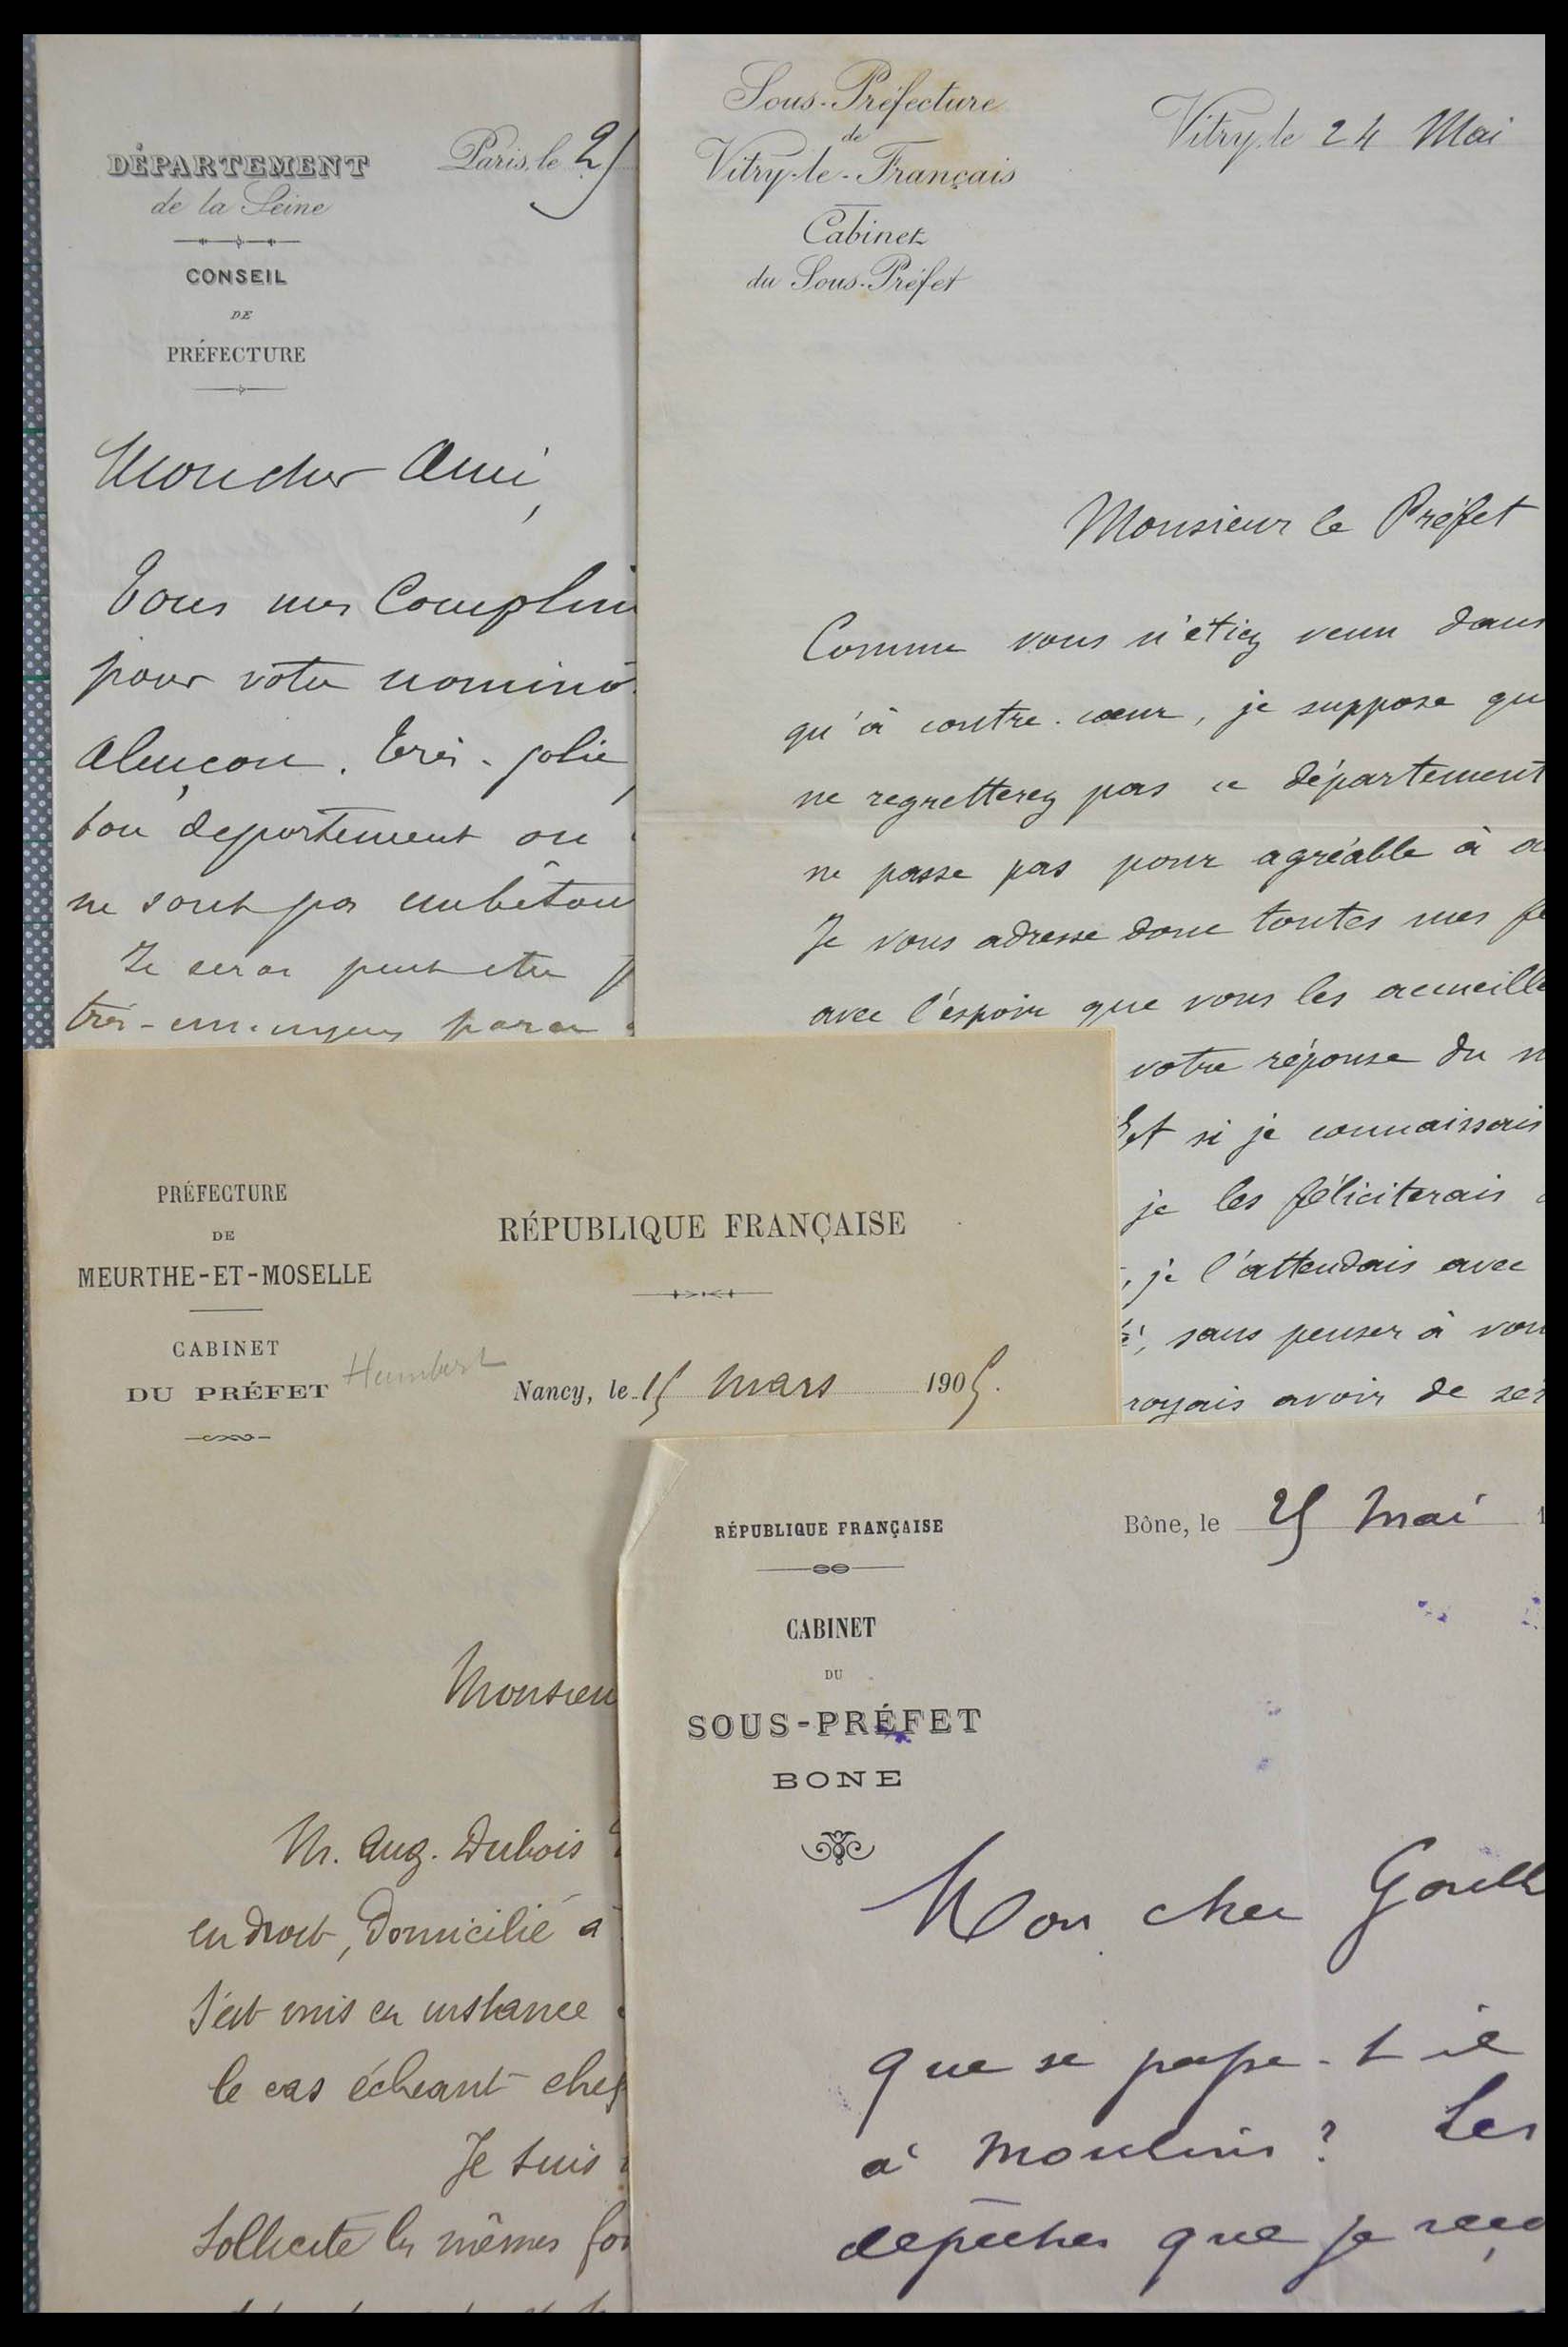 DÉPARTEMENT
de la Seine
CONSEIL
DE
PRÉFECTURE
Paris, le 25
Mon cher Ami,
Tous mes Complim
pour votre nomina
Alençon. Très-jolie
bon département on
ne sont pas embêtan
Je serai peut etre
très-
Sous-Préfecture
de
Vitry-le-Français
Cabinet
du Sous-Préfet
Vitry, le 24 Mai
Monsieur le Préfet
Comme vous n'étiez venu dans
qu'à contre-cœur, je suppose qu
ne regretterez pas ce département
ne passe pas pour agréable à a
Je vous adresse donc toutes mes fé
avec l'espoir que vous les accueille
votre réponse du
Et si je connaissais
je les féliciterais
, je l'attendais avec
, sans penser à vou
royais avoir de
PRÉFECTURE
DE
MEURTHE-ET-MOSELLE
CABINET
DU PRÉFET
Humbert
RÉPUBLIQUE FRANÇAISE
Nancy, le 15 mars 1905.
Monsieu
M. Aug. Dubois
en droit, domicilié à
s'est mis en instance
le cas échéant chez
Je suis
sollicite les mêmes fo
RÉPUBLIQUE FRANÇAISE
CABINET
DU
SOUS-PRÉFET
BONE
Bône, le 25 Mai 1
Mon cher
que se passe-t-il
à Moulins ? Les
dépêches que je reço